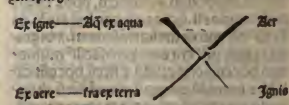 Ex igne Aq̃ ex aqua Aer
Ex aere tra ex terra Ignis